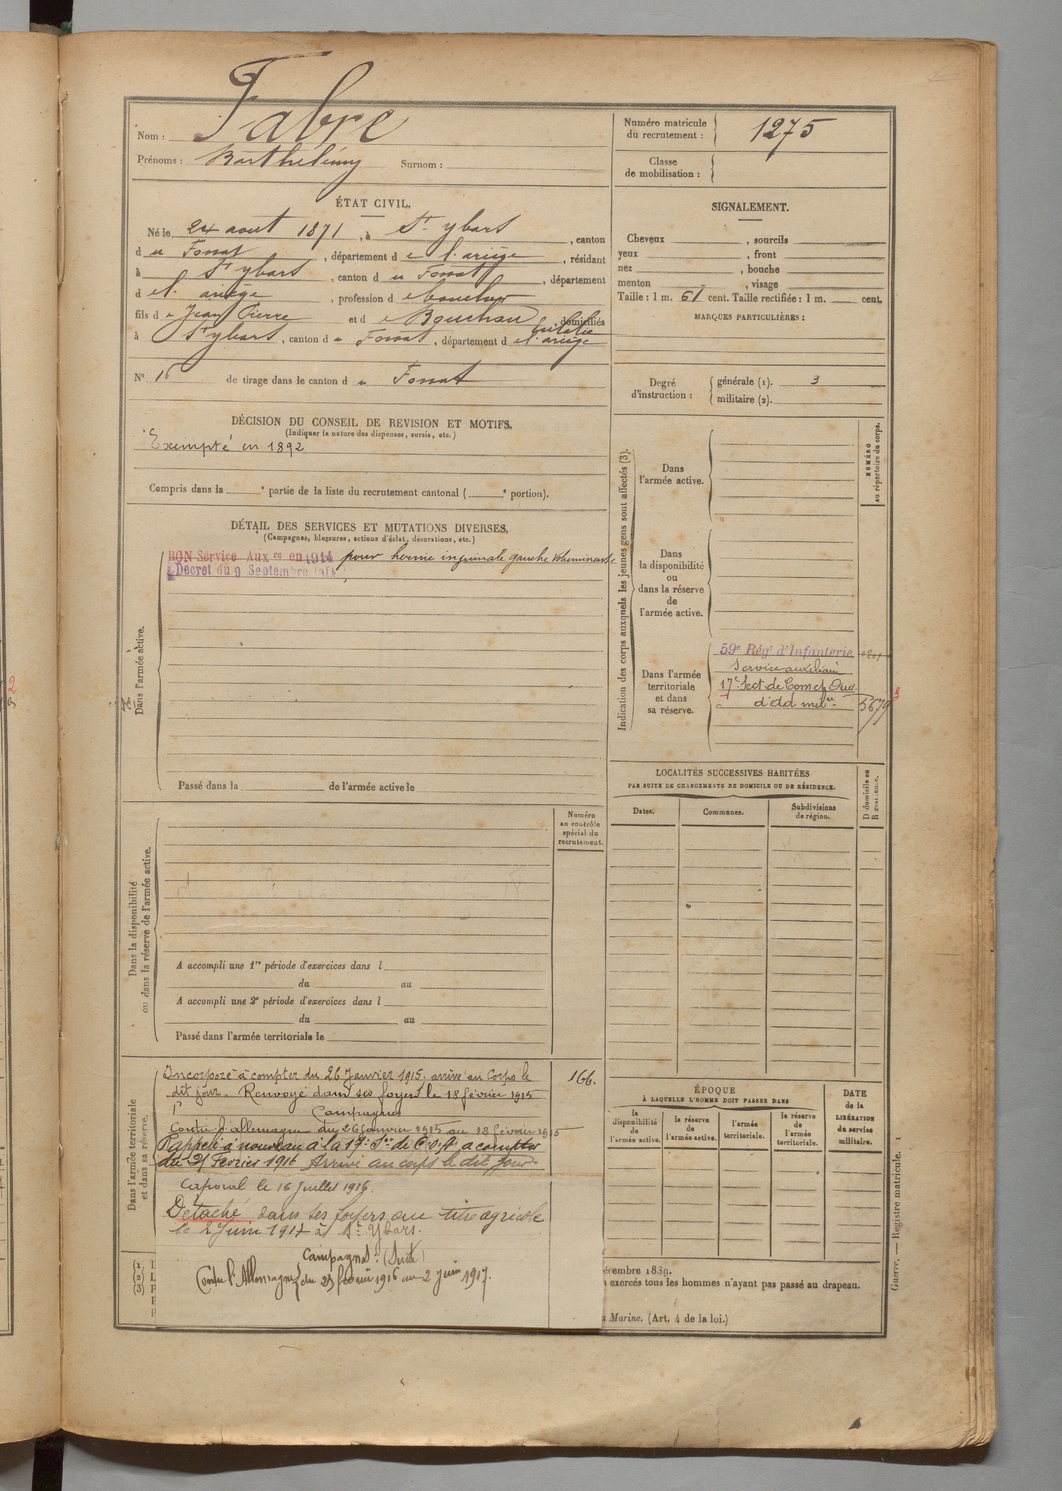 Nom : Fabre
Prénoms : Barthélémy Surnom :
Numéro matricule du recrutement : 1275
Classe de mobilisation :
ÉTAT CIVIL.
Né le 24 aout 1871, à St ybars, canton
du Fossat, département de l'ariège, résidant
à St ybars, canton du Fossat, département
d el'ariège, profession de
fils de Jean Pierre et de domiciliés
à St ybars, canton du Fossat, département de l'ariège
No 15 de tirage dans le canton du Fossat
SIGNALEMENT.
Cheveux , sourcils
yeux , front
nez , bouche
menton , visage
Taille : 1 m. 61 cent. Taille rectifiée : 1 m. cent.
MARQUES PARTICULIÈRES :
Degré d'instruction : générale (1). 3
militaire (2).
DÉCISION DU CONSEIL DE REVISION ET MOTIFS.
(Indiquer la nature des dispenses, sursis, etc.)
Exempté en 1892
Compris dans la e partie de la liste du recrutement cantonal ( e portion).
DÉTAIL DES SERVICES ET MUTATIONS DIVERSES.
(Campagnes, blessures, actions d'éclat, décorations, etc.)
BON Service Auxre en 1914 pour hernie inguinale gauche volumineuse
Décret du 9 Septembre 1914
Dans l'armée active.
Passé dans la de l'armée active le
Indication des corps auxquels les jeunes gens sont affectés (3).
NUMÉRO au répertoire du corps.
Dans l'armée active.
Dans la disponibilité ou dans la réserve de l'armée active.
Dans l'armée territoriale et dans sa réserve.
59e Régt d'Infanterie
Service auxiliaire
17e Sect de Comis et Ouv.
d'ad milre
5679
LOCALITÉS SUCCESSIVES HABITÉES
PAR SUITE DE CHANGEMENTS DE DOMICILE OU DE RÉSIDENCE.
Dates. Communes. Subdivisions de région.
D domicile ou R résidence.
Numéro au contrôle spécial du recrutement.
Dans la disponibilité ou dans la réserve de l'armée active.
A accompli une 1re période d'exercices dans l
du au
A accompli une 2e période d'exercices dans l
du au
Passé dans l'armée territoriale le
Dans l'armée territoriale et dans sa réserve.
Incorporé à compter du 26 Janvier 1915, arrivé au Corps le
dit jour. Renvoyé dans ses foyers le 18 février 1915
166.
Campagnes
Contre l'allemagne du 26 Janvier 1915 au 18 février 1915
Rappelé à nouveau à la 17e Son de C.O.A. à compter
du 25 Février 1916 Arrivé au corps le dit jour.
Caporal le 16 Juillet 1916.
Détaché dans ses foyers au titre agricole
le 2 Juin 1917 à St Ybars.
Campagnes (Suite)
Contre l'Allemagne du 25 février 1916 au 2 Juin 1917.
ÉPOQUE
À LAQUELLE L'HOMME DOIT PASSER DANS
la disponibilité de l'armée active.
la réserve de l'armée active.
l'armée territoriale.
la réserve de l'armée territoriale.
DATE de la LIBÉRATION du service militaire.
(1)
(2)
(3)
écembre 1889.
exercés tous les hommes n'ayant pas passé au drapeau.
Marine. (Art. 4 de la loi.)
Guerre. — Registre matricule. 1